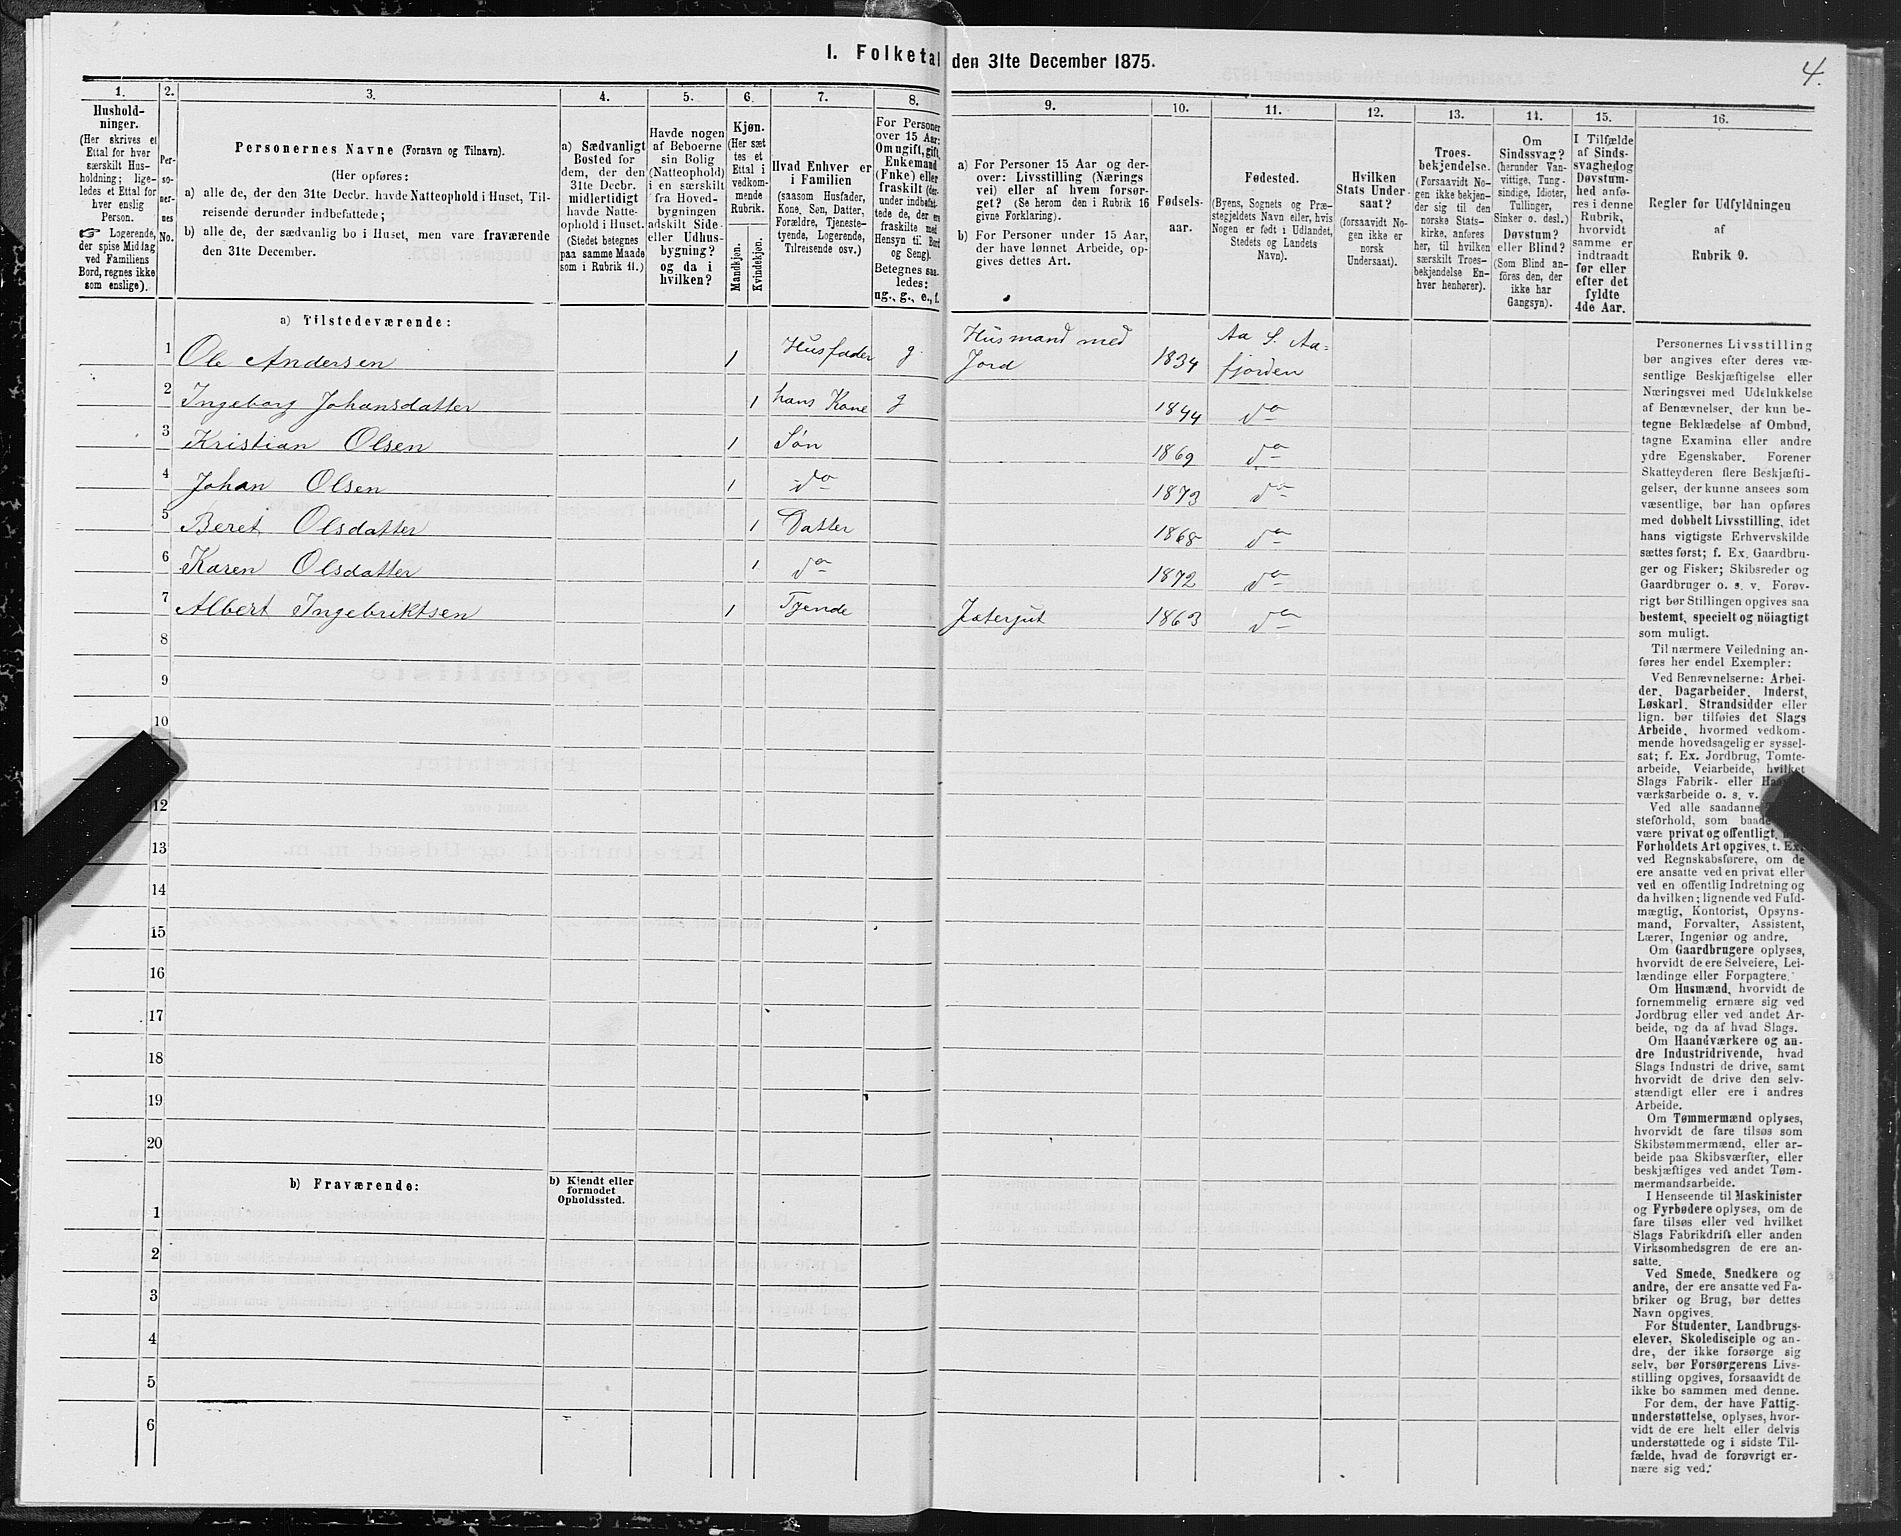 I. Folketal den 31te December 1875.
4.
1.
Hushold-
ninger.
(Her skrives et
Ettal for hver
særskilt Hus-
holdning; lige-
ledes et Ettal for
hver enslig
Person.
☞ Logerende,
der spise Middag
ved Familiens
Bord, regnes ikke
som enslige).
2.
Per-
so-
ner-
nes
No.
3.
Personernes Navne (Fornavn og Tilnavn).
(Her opføres:
a) alle de, der den 31te Decbr. havde Natteophold i Huset, Til-
reisende derunder indbefattede;
b) alle de, der sædvanlig bo i Huset, men vare fraværende
den 31te December.
4.
a) Sædvanligt
Bosted for
dem, der den
31te Decbr.
midlertidigt
havde Natte-
ophold i Huset.
(Stedet betegnes
paa samme Maade
som i Rubrik 11.)
5.
Havde nogen
af Beboerne
sin Bolig
(Natteophold)
i en særskilt
fra Hoved-
bygningen
adskilt Side-
eller Udhus-
bygning?
og da i
hvilken?
6.
Kjøn.
(Her sæt
tes et
Ettal i
vedkom-
mende
Rubrik.
Mandkjøn.
Kvindekjøn.
7.
Hvad Enhver er
i Familien
(saasom Husfader,
Kone, Søn, Datter,
Forældre, Tjeneste-
tyende, Logerende,
Tilreisende osv.)
8.
For Personer
over 15 Aar:
Om ugift, gift,
Enkemand
(Enke) eller
fraskilt (der-
under indbefat-
tede de, der ere
fraskilte med
Hensyn til Bord
og Seng).
Betegnes saa-
ledes:
ug., g., e., f.
9.
a) For Personer 15 Aar og der-
over: Livsstilling (Nærings
vei) eller af hvem forsør-
get? (Se herom den i Rubrik 16
givne Forklaring).
b) For Personer under 15 Aar,
der have lønnet Arbeide, op-
gives dettes Art.
10.
Fødsels-
aar.
11.
Fødested.
(Byens, Sognets og Præ-
stegjeldets Navn eller, hvis
Nogen er født i Udlandet,
Stedets og Landets
Navn).
12.
Hvilken
Stats Under-
saat?
(forsaavidt No-
gen ikke er
norsk
Undersaat).
13.
Troes-
bekjendelse.
(Forsaavidt No-
gen ikke bekjen-
der sig til den
norske Stats-
kirke, anføres
her, til hvilken
særskilt Troes-
bekjendelse En-
hver henhører).
14.
Om
Sindssvag?
(herunder Van-
vittige, Tung-
sindige, Idioter,
Tullinger,
Sinker o. desl.)
Døvstum?
eller Blind?
(Som Blind an-
føres den, der
ikke har
Gangsyn).
15.
I Tilfælde
af Sinds-
svaghed og
Døvstum-
hed anfø-
res i denne
Rubrik,
hvorvidt
samme er
indtraadt
før eller
efter det
fyldte
4de Aar.
16.
Regler for Udfyldningen
af
Rubrik 9.
a) Tilstedeværende:
1 Ole Andersen 1 Husfader g Husmand med Jord 1834 Aa S. Aa=fjorden
2 Ingeborg Johansdatter 1 hans Kone g 1844 do
3 Kristian Olsen 1 Søn 1869 do
4 Johan Olsen 1 do 1873 do
5 Beret Olsdatter 1 Datter 1868 do
6 Karen Olsdatter 1 do 1872 do
7 Albert Ingebriktsen 1 Tyende Jætergut 1863 do
8
9
10
12
13
14
15
16
17
18
19
20
b) Fraværende:
b) Kjendt eller
formodet
Opholdssted.
1
2
3
4
5
6
Personernes Livsstilling
bør angives efter deres væ-
sentlige Beskjæftigelse eller
Næringsvei med Udelukkelse
af Benævnelser, der kun be-
tegne Beklædelse af Ombud,
tagne Examina eller andre
ydre Egenskaber. Forener
Skatteyderen flere Beskjæfti-
gelser, der kunne ansees som
væsentlige, bør han opføres
med dobbelt Livsstilling, idet
hans vigtigste Erhvervskilde
sættes først; f. Ex. Gaardbru-
ger og Fisker; Skibsreder og
Gaardbruger o. s. v. Forøv-
rigt bør Stillingen opgives saa
bestemt, specielt og nöiagtigt
som muligt.
Til nærmere Veiledning an-
føres her endel Exempler:
Ved Benævnelserne: Arbei-
der, Dagarbeider, Inderst,
Løskarl, Strandsidder eller
lign. bør tilføies det Slags
Arbeide, hvormed vedkom-
mende hovedsagelig er syssel-
sat; f. Ex. Jordbrug, Tomte-
arbeide, Veiarbeide, hvilket
Slags Fabrik- eller
værksarbeide o. s. v.
Ved alle saadanne
steforhold, som baade
være privat og offentligt,
Forholdets Art opgives, f. Ex.
ved Regnskabsførere, om de
ere ansatte ved en privat eller
ved en offentlig Indretning og
da hvilken; lignende ved Fuld-
mægtig, Kontorist, Opsyns-
mand, Forvalter, Assistent,
Lærer, Ingeniør og andre.
Om Gaardbrugere oplyses,
hvorvidt de ere Selveiere, Lei-
lændinge eller Forpagtere.
Om Husmænd, hvorvidt de
fornemmelig ernære sig ved
Jordbrug eller ved andet Ar-
beide, og da af hvad Slags.
Om Haandværkere og an-
dre Industridrivende, hvad
Slags Industri de drive, samt
hvorvidt de drive den selv-
stændigt eller ere i andres
Arbeide.
Om Tømmermænd oplyses,
hvorvidt de fare tilsøs som
Skibstømmermænd, eller ar-
beide paa Skibsværfter, eller
beskjæftiges ved andet Tøm-
mermandsarbeide.
I Henseende til Maskinister
og Fyrbødere oplyses, om de
fare tilsøs eller ved hvilket
Slags Fabrikdrift eller anden
Virksomhedsgren de ere an-
satte.
Ved Smede, Snedkere og
andre, der ere ansatte ved Fa-
briker og Brug, bør dettes
Navn opgives.
For Studenter, Landbrugs-
elever, Skoledisciple og an-
dre, der ikke forsørge sig
selv, bør Forsørgerens Livs-
stilling opgives, forsaavidt de
ikke bo sammen med denne.
For dem, der have Fattig-
understøttelse, oplyses, hvor-
vidt de ere helt eller delvis
understøttede og i sidste Til-
fælde, hvad de forøvrigt er-
nære sig ved.